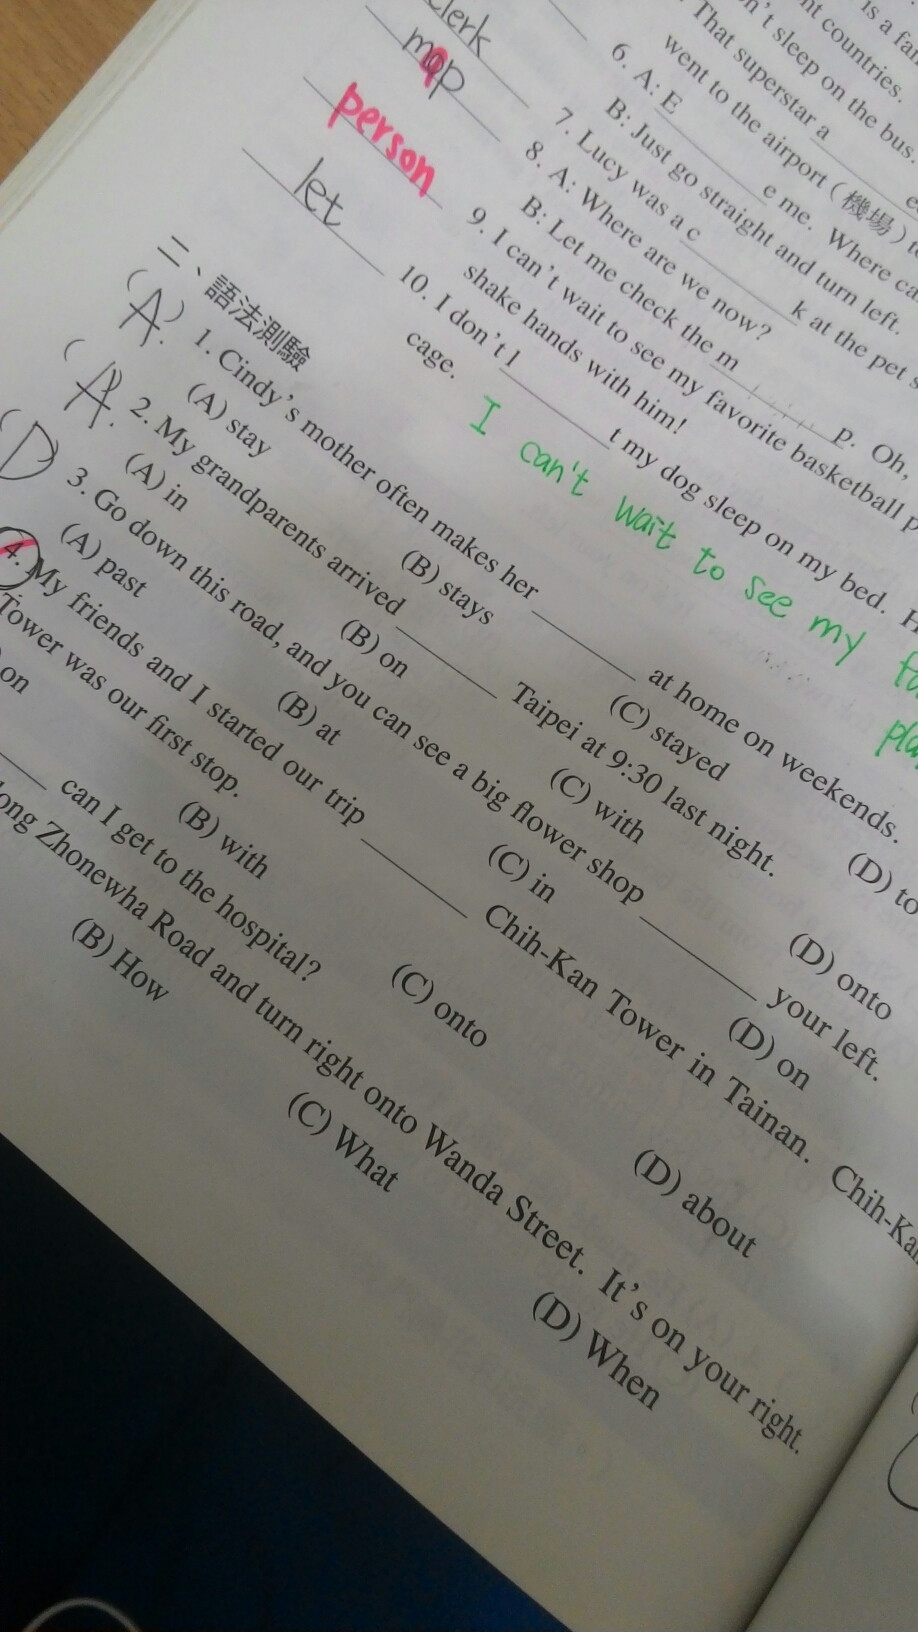 clerk
map
person
let
is a
nt countries.
n't sleep on the bus.
That superstar a
went to the airport (機場)
6. A: E e me. Where
B: Just go straight and turn left.
7. Lucy was a c k at the pet
8. A: Where are we now?
B: Let me check the m p. Oh,
9. I can't wait to see my favorite basketball
shake hands with him!
10. I don't l t my dog sleep on my bed.
cage.
I can't wait to see my
二、語法測驗
(A) 1. Cindy's mother often makes her at home on weekends.
(A) stay (B) stays (C) stayed (D) to
(A) 2. My grandparents arrived Taipei at 9:30 last night.
(A) in (B) on (C) with (D) onto
(D) 3. Go down this road, and you can see a big flower shop your left.
(A) past (B) at (C) in (D) on
4. My friends and I started our trip Chih-Kan Tower in Tainan. Chih-Kan
Tower was our first stop.
on (B) with (C) onto (D) about
can I get to the hospital?
ong Zhonewha Road and turn right onto Wanda Street. It's on your right.
(B) How (C) What (D) When